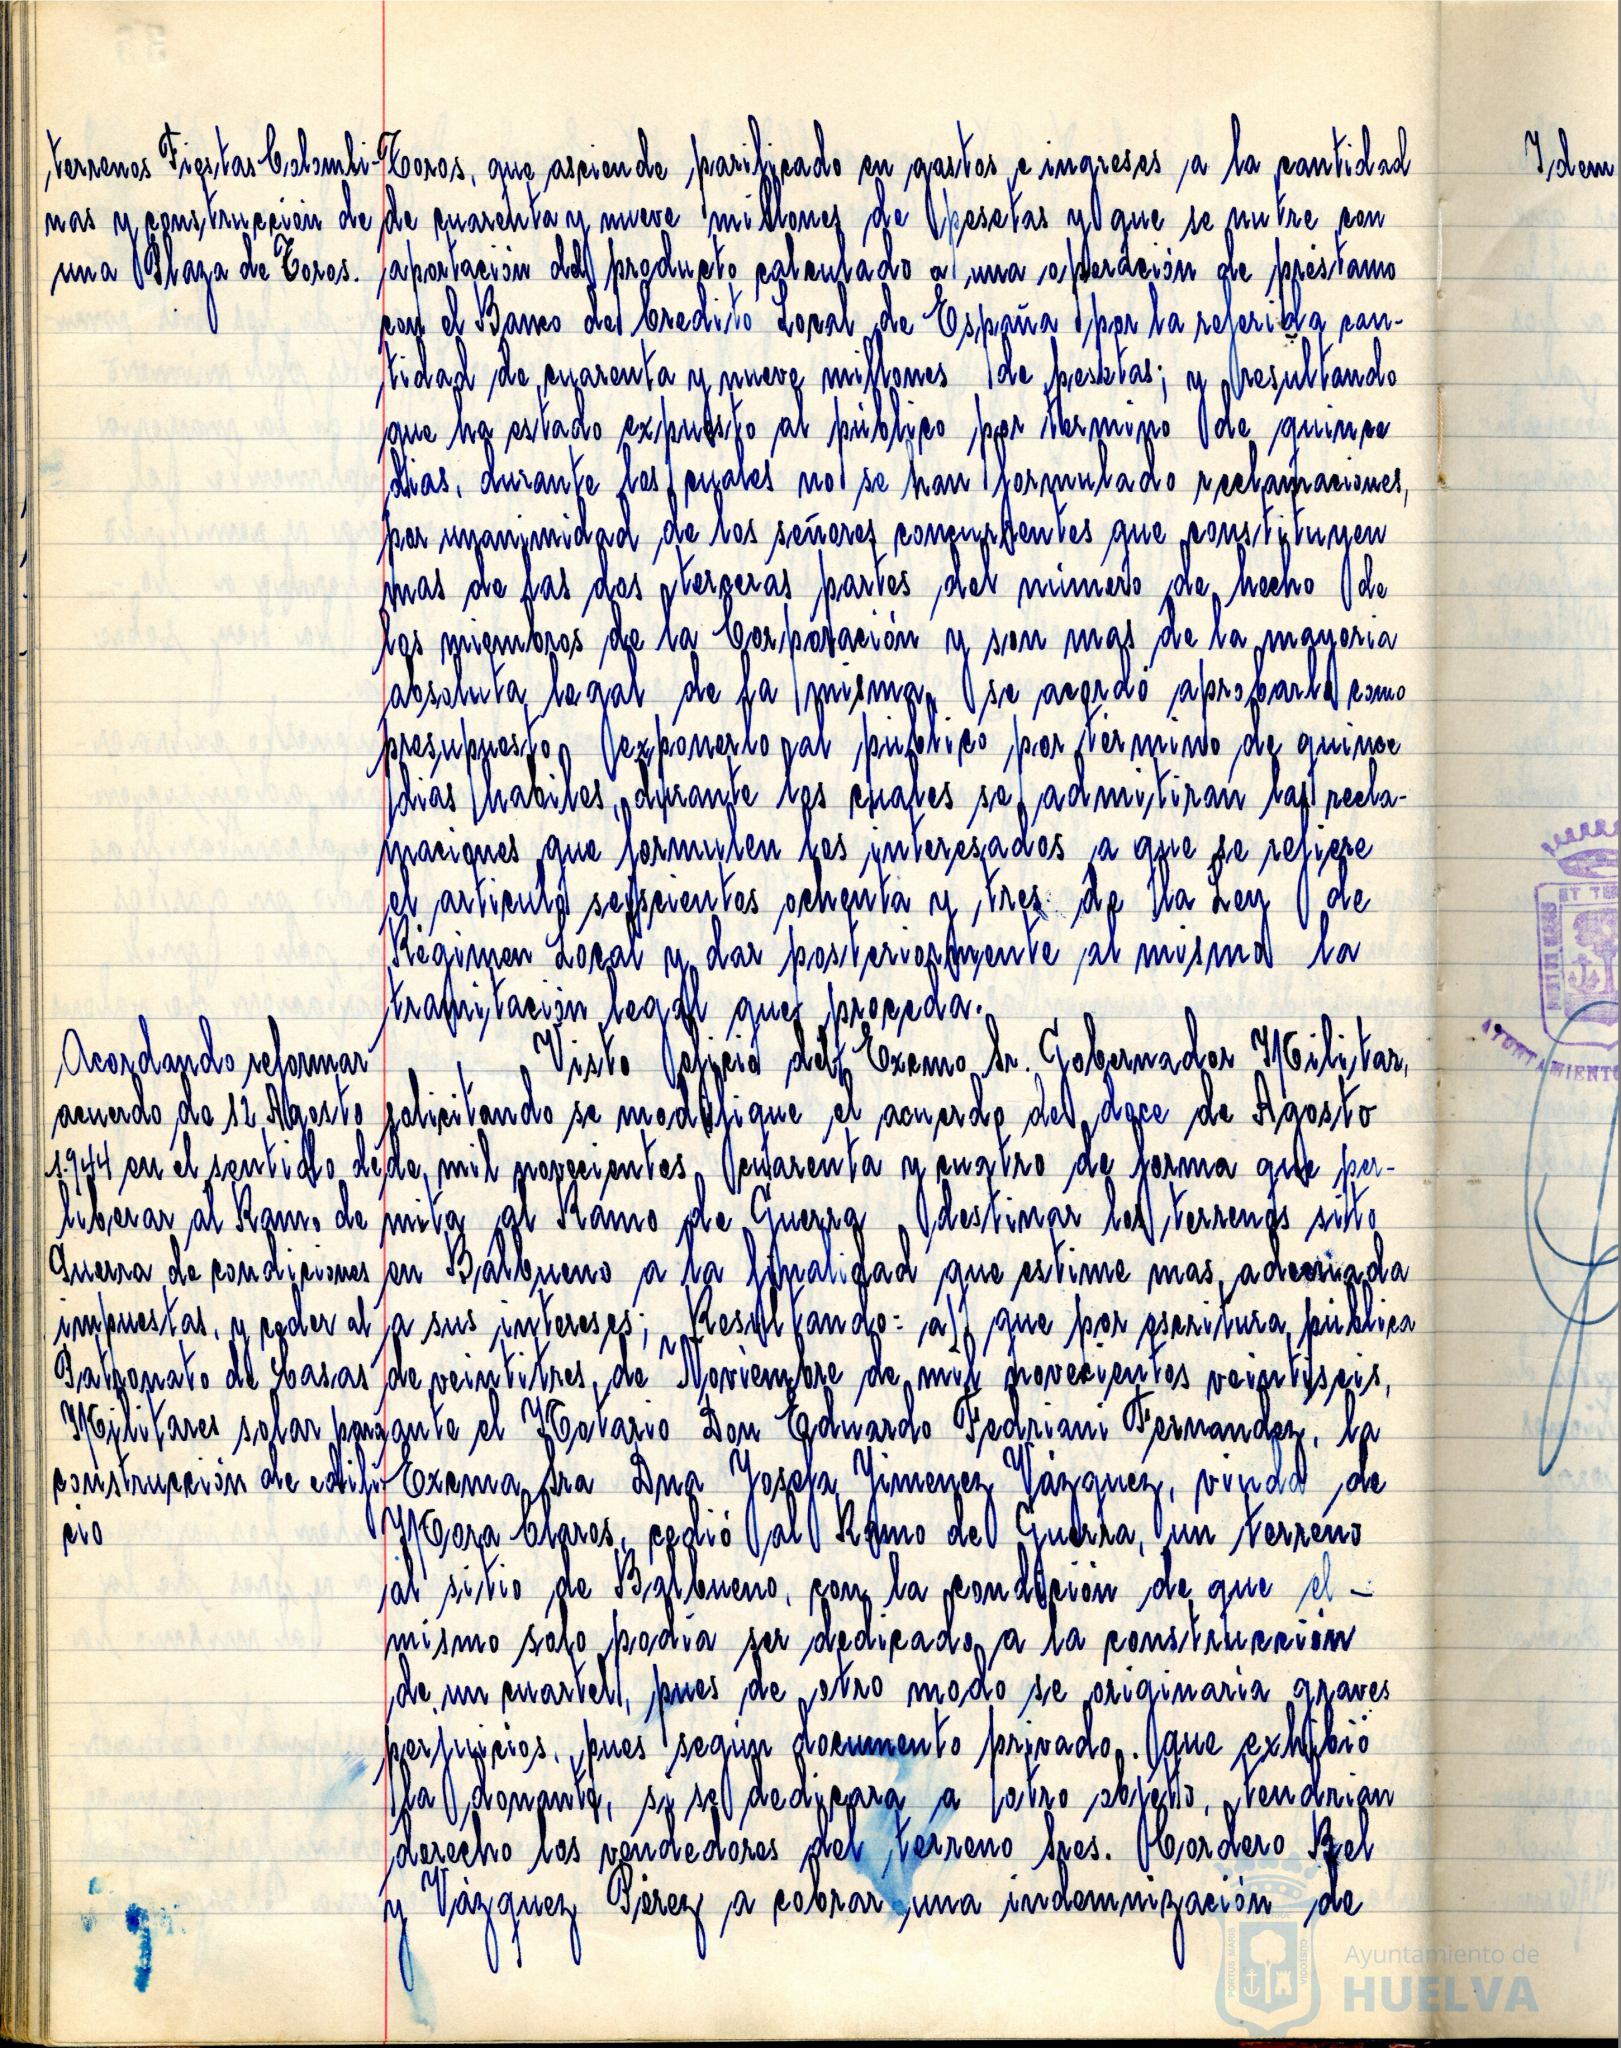 terrenos Fiestas Colombi-
nas y construcción de
una Plaza de Toros.
Toros, que asciende parificado en gastos e ingresos a la cantidad
de cuarenta y nueve millones de pesetas y que se nutre con
aportación del producto calculado a una operación de préstamo
con el Banco de Credito Local de España por la referida can-
tidad de cuarenta y nueve millones de pesetas; y resultando
que ha estado expuesto al público por termino de quince
dias, durante los cuales no se han formulado reclamaciones,
por unanimidad de los señores concurrentes que constituyen
mas de las dos terceras partes del número de hecho de
los miembros de la Corporación y son mas de la mayoria
absoluta legal de la misma, se acordó aprobarlo como
presupuesto, exponerlo al público por término de quince
dias habiles, durante los cuales se admitiran las recla-
maciones que formulen los interesados a que se refiere
el articulo seiscientos ochenta y tres de la Ley de
Régimen Local y dar posteriormente al mismo la
tramitación legal que proceda.
Acordando reformar
acuerdo de 12 Agosto
1.944 en el sentido de
liberar al Ramo de
Guerra de condiciones
impuestas, y ceder al
Patronato de Casas
Militares solar para
construcción de edifi-
cio
Visto oficio del Excmo Sr. Gobernador Militar,
solicitando se modifique el acuerdo del doce de Agosto
de mil novecientos cuarenta y cuatro de forma que per-
mita al Ramo de Guerra destinar los terrenos sito
en Balbueno a la finalidad que estime mas adecuada
a sus intereses; Resultando: a) que por escritura pública
de veintitres de Noviembre de mil novecientos veintiseis,
ante el Notario Don Eduardo Fedriani Fernandez, la
Excma Sra Dña Josefa Jimenez Vázquez, viuda de
Mora Claros, cedió al Ramo de Guerra, un terreno
al sitio de Balbueno, con la condición de que el -
mismo solo podia ser dedicado a la construcción
de un cuartel, pues de otro modo se originaria graves
perjuicios, pues según documento privado. que exhibió
la donante, si se dedicara a otro objeto, tendrian
derecho los vendedores del terreno Sres. Cordero Bel
y Vázquez Pérez a cobrar una indemnización de
Idem
AYUNTAMIENTO
PORTUS MARIS
CUSTODIA
Ayuntamiento de
HUELVA